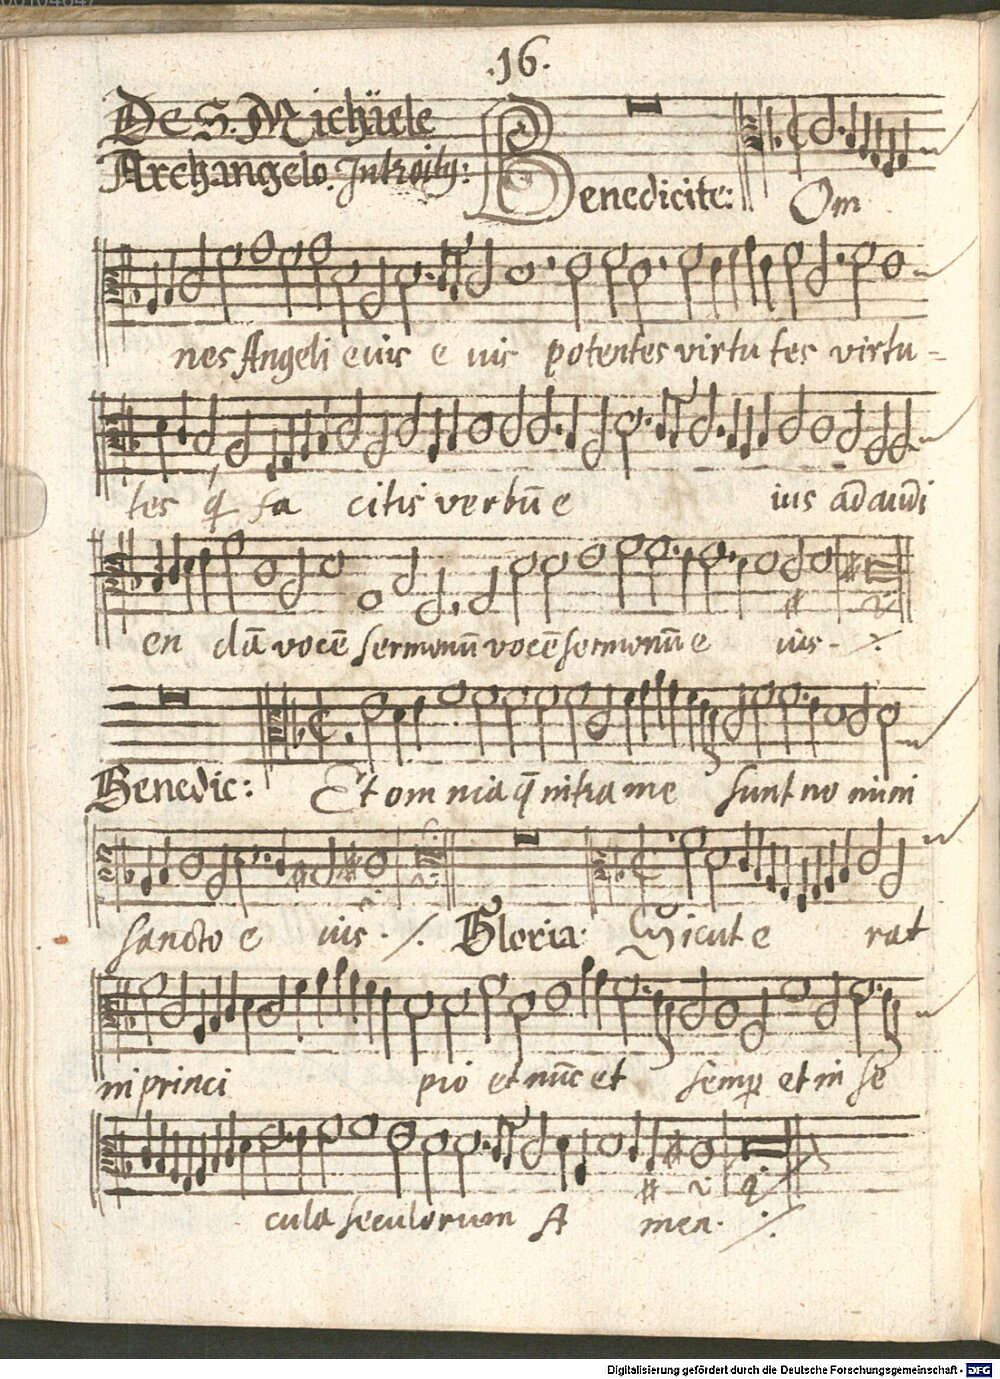 .16.
De S. Michäele
Archangelo. Introitꝰ:
Benedicite: Om
nes Angeli eius e ius potentes virtu tes virtu-
tes q́ fa citis verbū e ius ad audi
en dā vocē sermonū vocē sermonū e ius. ./.
Benedic: Et omnia q̄ intra me sunt no mini
sancto e ius. ./. Gloria: Sicut e rat
in princi pio et nūc et semꝑ et in se
cula seculorum A men. ./.
Digitalisierung gefördert durch die Deutsche Forschungsgemeinschaft - DFG